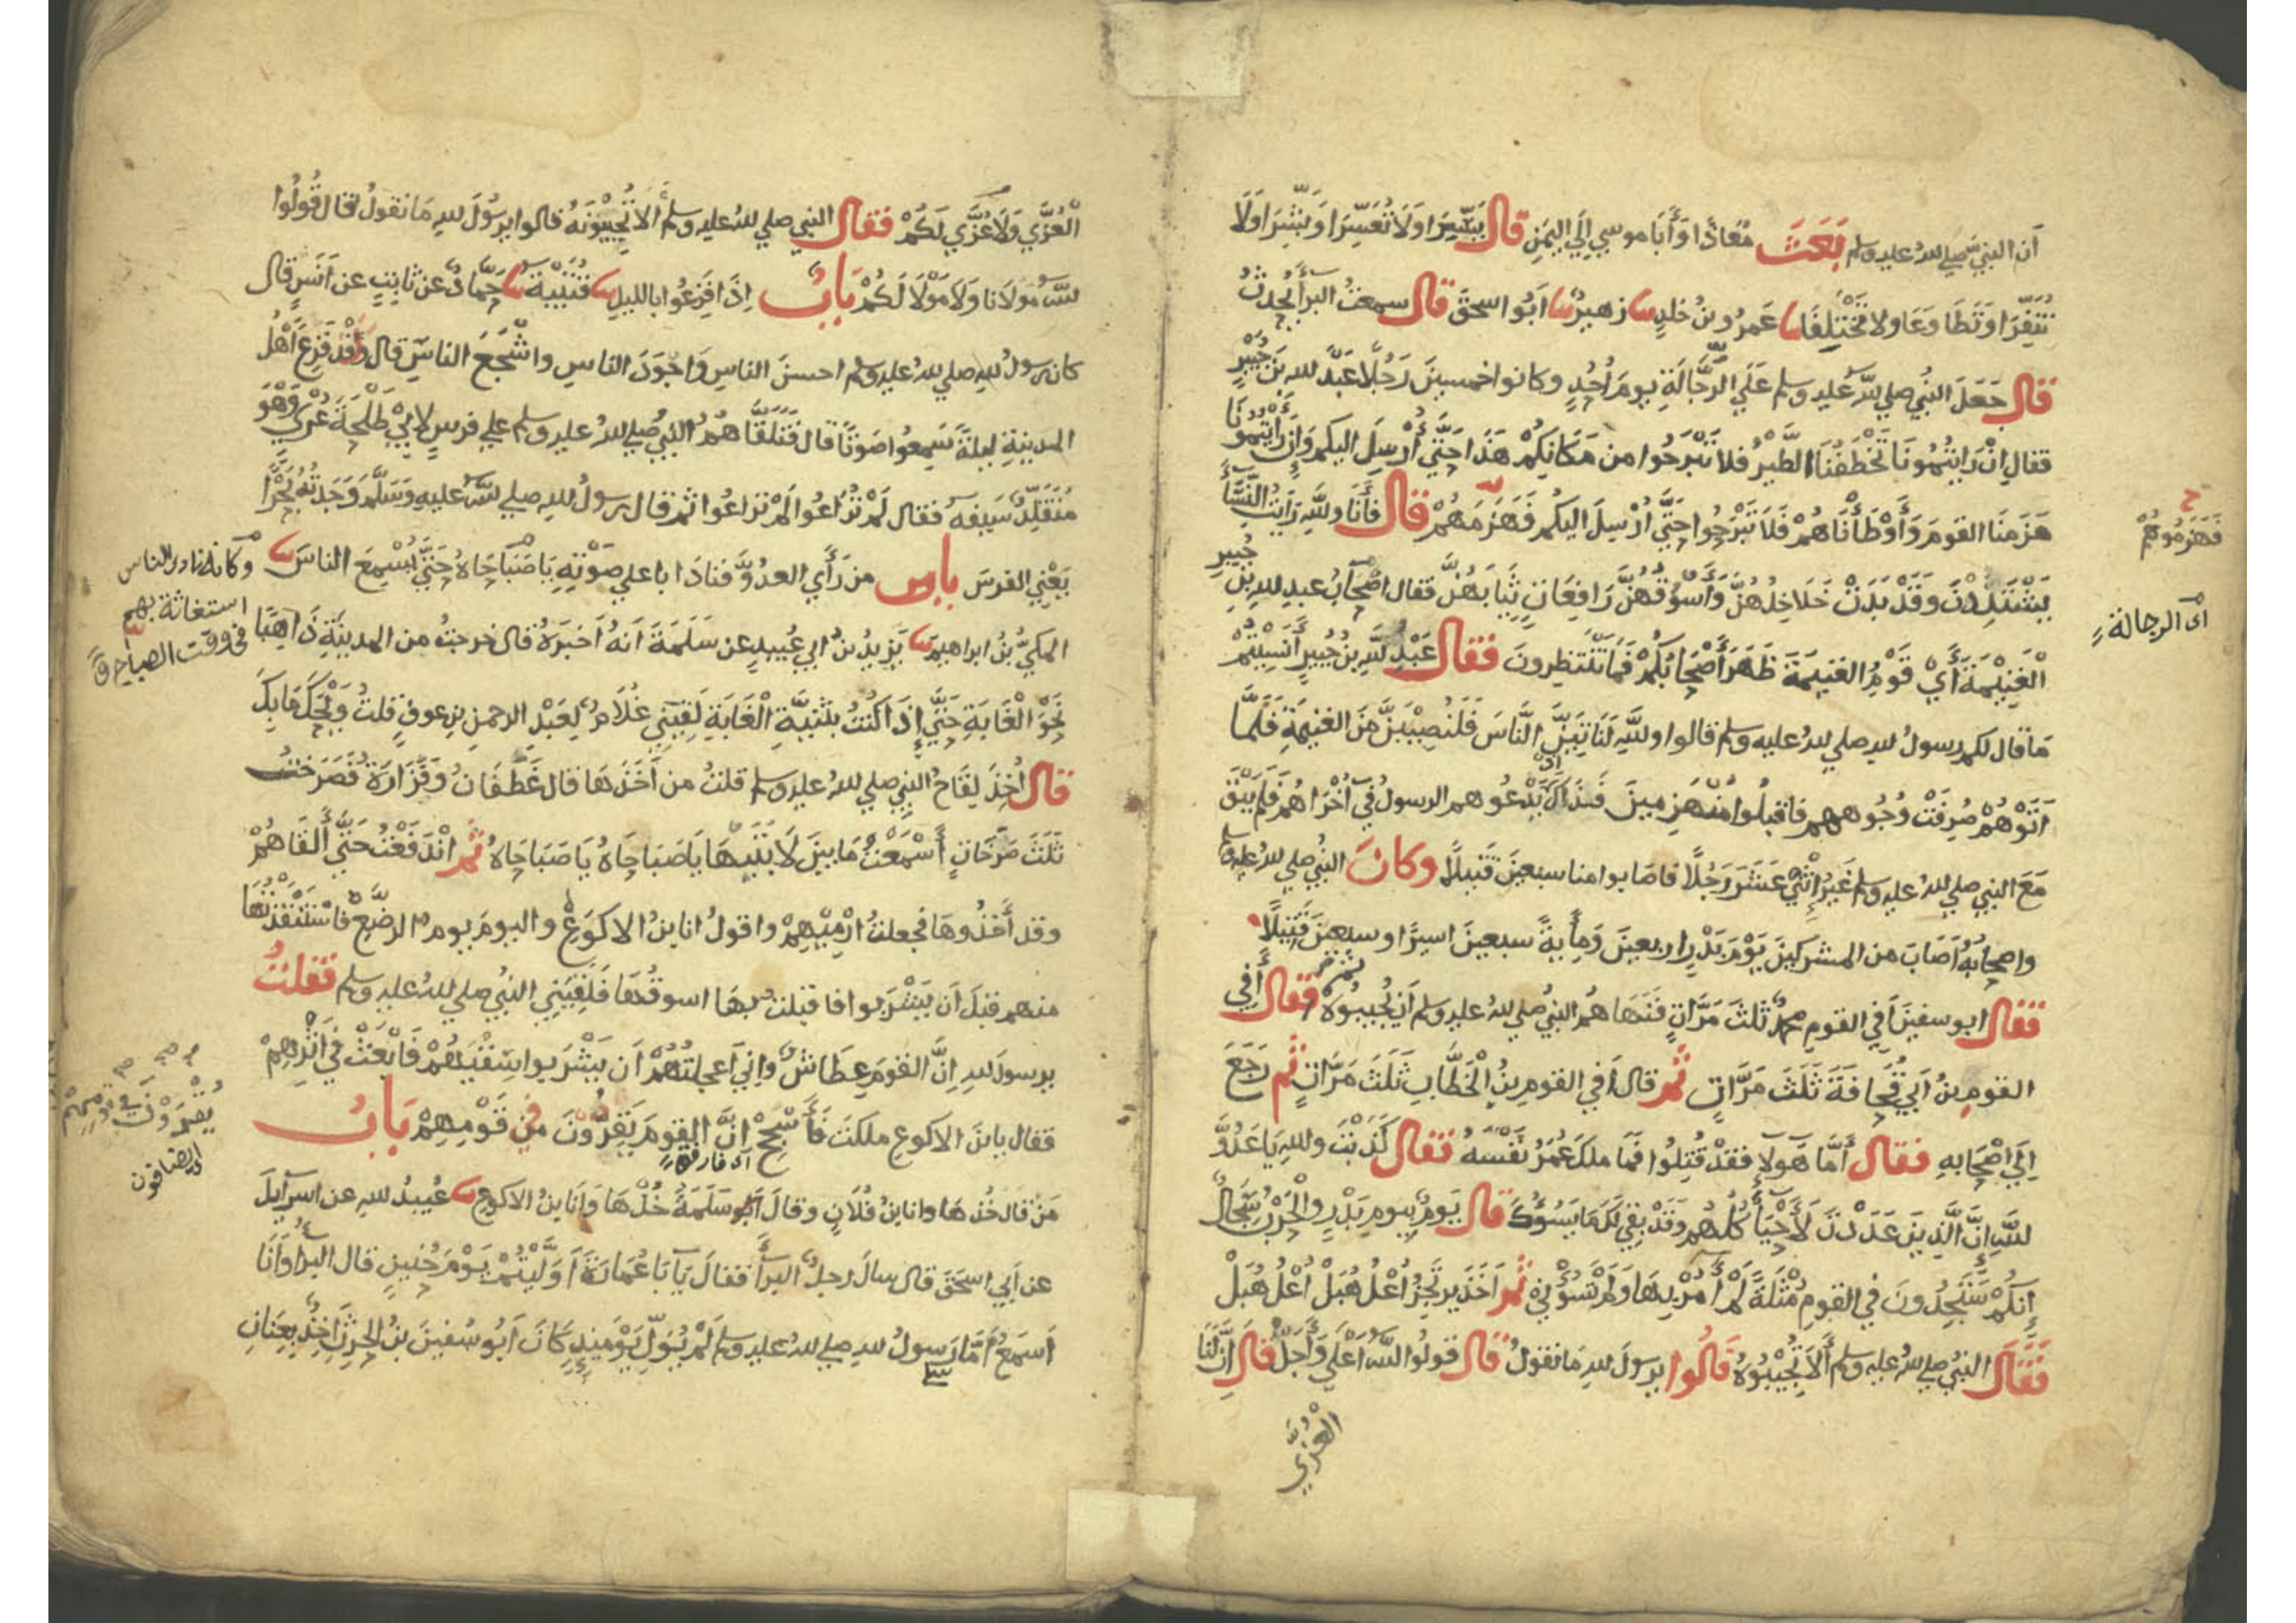 أن النبي صلى الله عليه وسلم بَعَثَ مُعَاذًا وَأَبَا موسي إلَي اليَمَنِ قال يَسِّرَا وَلَا تُعَسِّرَا وَبَشِّرَا وَلَا
تُنَفِّرَا وَتَطَاوَعَا ولا تَخْتَلِفَا نا عَمرُو بنُ خلدٍ نا زهيرٌ نا ابُوا سحقَ قال سمعتُ البرأ يُحدثُ
قال جَعَلَ النبُي صلي الله عليه وسلم عَلَي الرَّجَّالَةِ يومَ أُحُدٍ وكانوا خمسينَ رَجُلًا عَبدَ لله بنَ جُبَيرٍ
فقال اِنْ رَايتُمُونَا تَخْطَفُنَا الطَّيْرُ فلا تَبْرَحُوا من مَكَانِكُمْ هَذَا حَتَّي أُرْسِلَ اليكم وَاِن رَأَيْتمُونَا
هَزَمنَا القومَ وَأَوْطَأْنَاهُمْ فَلَا تَبْرَحُوا حَتَّي اُرْسِلَ اليكم فَهَزَمَهُمْ قال فَأَنَا وللهِ رَايتُ النِّسَأَ
يَشْتَدِدْنَ وَقَدْ بَدَتْ خَلَاخِلُهُنَّ وَأَسْوُقُهُنَّ رَافِعَاتٍ ثِيَابَهُنَّ فقال اصْحَابُ عبدِ لله بنِ جُبيرٍ
الْغَنِيْمَةَ أَيْ قَوْمِ الغنيمةَ ظَهَرَ أَصْحَابُكُمْ فَمَا تَنْتَظِرونَ فقال عَبْدُ للهِ بنُ جُبيرٍ أَنَسِيْتُمْ
مَا قال لكم رسولُ لله صلي لله عليه وسلم قالوا وللهِ لَنَاتِيَنَّ النَّاسَ فَلَنُصِيْبَنَّ مِنَ الغنيمةِ فَلَمَّا
اَتَوْهُمْ صُرِفَتْ وُجُوههم فاقبلُوا مُنْهَزِمينَ فَذَاكَ اذ يَدْعُوهم الرسولُ في أُخْرَاهُمْ فَلَمْ يَبْقَ
مَعَ النبي صلي لله عليه وسلم غَيْرُ اِثْنَي عَشَرَ رَجُلًا فاصَابوا منا سبعينَ قَتيلًا وكانَ النبُي صلي لله عليه وسلم
واصحابُهُ اَصَابَ من المشركينَ يَوْمَ بَدْرٍ اربعينَ وَمِأيةً سبعينَ اسيرًا وسبعينَ قَتيلًا
فقال ابو سفينَ أَفِي القومِ محمدٌ ثلثَ مَرَّاتٍ فَنَهَاهُم النبُي صلي لله عليه وسلم أن يُجيبُوهُ ثم فقال أَفي
القومِ بنُ أَبي قُحَافةَ ثَلثَ مَرَّاتٍ ثم قال أَفي القومِ بنُ الْخَطَّابِ ثَلثَ مَرَّاتٍ ثم رَجَعَ
اِلَي اَصْحَابِهِ فقال أَمَّا هَولَآءِ فقد قُتِلُوا فَمَا ملكَ عُمَرُ نَفْسَهُ فقال كَذَبْتَ وللهِ يَا عَدُوَّ
للهِ إنَّ الَّذينَ عَدَدْتَ لَأَحْيَأٌ كُلُّهُم وَقَدْ بقِيَ لكَ مَا يَسُوؤُكَ قال يَومٌ بيومِ بَدْرٍ والْحَرْبُ سِجَالٌ
إنكُمْ سَتَجِدُونَ في القومِ مُثْلَةً لَمْ أَمُرْ بِهَا وَلَمْ تَسُؤْنِي ثم اَخَذَ يرتَجِزُ اُعْلُ هُبَلْ اُعْلُ هُبَلْ
فَقَالَ النبُي صلي لله عليه وسلم أَلَا تُجِيْبُوهُ قَالُوا يرسولَ للهِ مَا نقولُ قال قولُوا الله اَعْلَي وَأَجَلُّ قال إنَّ لَنَا
العُزَّي
ح
فَهَزَمُوهُمْ
اى الرجالة
الْعُزَّي وَلَا عُزَّي لَكُمْ فقال النبي صلي لله عليه وسلم أَلا تُجِيْبُوْنَهُ قالوا يرسُولَ لله مَا نقولُ قال قُولُوا
للهُ مَوْلَانَا وَلَا مَوْلَا لَكُمْ بَابٌ اِذَا فَزِعُوا بالليلِ نا قُتَيْبَةُ نا حَمَّادٌ عن ثابتٍ عن أَنسٍ قال
كان رسولُ للهِ صلي لله عليه وسلم احسنَ الناسِ وَاجْوَدَ الناسِ واشْجَعَ الناسِ قال وَقْد فَزِعَ اَهْلُ
المدينةِ ليلةً سَمِعُوا صَوْتًا قال فَتَلَقَّاهُمُ النبُي صلي لله عليه وسلم علي فرسٍ لِابِيْ طَلْحَةَ عُرْيٍ وَهْوَ
مُتَقَلِّدٌ سَيفَهُ فقال لَمْ تُرَاعُوا لَمْ تراعُوا ثم قال رسولُ لله صلي لله عليهِ وَسَلَّمَ وَجَدتُهُ بَحْرًا
يَعْنِي الفرسَ بابُ من رَأَي العدُوَّ فنادَا باعلي صَوْتِهِ يَا صَبَاحَاهْ حَتَّي يُسْمِعَ الناسَ نا
المكيُّ بنُ ابراهيمَ نا يَزيدُ بنُ ابي عُبيدٍ عن سَلَمَةَ أنهُ أَخبَرَهُ قال خرجتُ من المدينةِ ذَاهبًا
نَحْوَ الْغَابَةِ حَتَّي إذَا كنتُ بِثَنِيَّةِ الْغَابَةِ لَقِيَنِي غُلَامٌ لِعَبْدِ الرحمنِ بنِ عوفٍ قلتُ وَيْحَكَ مَا بِكَ
قال أُخِذَ لِقَاحُ النبي صلي لله عليه وسلم قلتُ من أَخَذَهَا قال غَطَفَانُ وَفَزَارَةُ فَصَرَختُ
ثَلثَ صَرَخَاتٍ أَسْمَعْتُ مَا بينَ لَابَتَيْهَا يَا صَبَاحَاهُ يَا صَبَاحَاهُ ثُم اِنْدَفَعْتُ حَتَّي أَلقَاهُمْ
وقد أَخَذُوهَا فجعلتُ ارْمِيْهِمْ واقولُ انا بنُ الاكوَعِ واليومَ يومُ الرضَّعِ فاسْتَنْقَذْتُهَا
منهم قبلَ أن يَشْرَبوا فاقبلتُ بهَا اسوقُهَا فَلَقِيَنِي النبُي صلي لله عليه وسلم فقلتُ
يرسولَ للهِ اِنَّ القومَ عِطَاشٌ وإني أَعجلتُهُمْ اَن يَشْرَبوا سِقْيَهُمْ فَابْعَثْ فِي اَثَرِهِمْ
فقال يا بنَ الاكوعِ ملكتَ فَأَسْجِحْ اِنَّ القومَ يَقِرُّوْنَ في قَوْمِهِمْ بَابُ
اى فارفق
مَنْ قال خُذهَا وانا بنُ فُلَانٍ وقالَ سَلَمَةُ خُذْهَا وَأَنَا بنُ الاكوعِ نا عُبيدُ للهِ عن اسرآيلَ
عن أَبي اسحقَ قال سالَ رجلٌ البرأَ فقالَ يَآ بَا عُمَارَةَ أَوَلَّيْتُمْ يَوْمَ حُنينٍ قال البرأُ وَأَنَا
اَسمَعُ أَمَّا رَسولُ للهِ صلي لله عليه وسلم لَمْ يُوَلِّ يَوْمَئِذٍ كَانَ اَبُو سُفينَ بنُ الحرثِ اَخِذٌ بِعِنَانِ
وكانه نادى الناس
استغاثة بهم
في وقت الصباح ق
يُقْرَوْنَ
اى يضافون